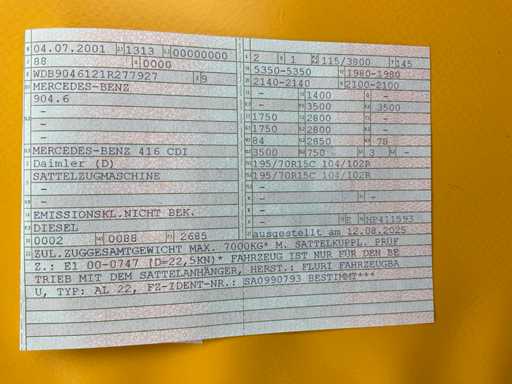 04.07.2001 1313 00000000
88 0000
WDB9046121R277927 9
MERCEDES-BENZ
904.6
-
-
-
MERCEDES-BENZ 416 CDI
Daimler (D)
SATTELZUGMASCHINE
-
-
EMISSIONSKL.NICHT BEK.
DIESEL
0002 0088 2685
2 1 115/3800 145
5350-5350 1980-1980
2140-2140 2100-2100
- 1400 -
- 3500 3500
1750 2800 -
1750 2800 -
84 2850 78
3500 750 3 -
195/70R15C 104/102R
195/70R15C 104/102R
-
- -
-
- E HP411593
ausgestellt am 12.08.2025
ZUL.ZUGGESAMTGEWICHT MAX. 7000KG* M. SATTELKUPPL. PRÜF
Z.: E1 00-0747 (D=22,5KN)* FAHRZEUG IST NUR FÜR DEN BE
TRIEB MIT DEM SATTELANHÄNGER, HERST.: FLURI FAHRZEUGBA
U, TYP: AL 22, FZ-IDENT-NR.: SA0990793 BESTIMMT***